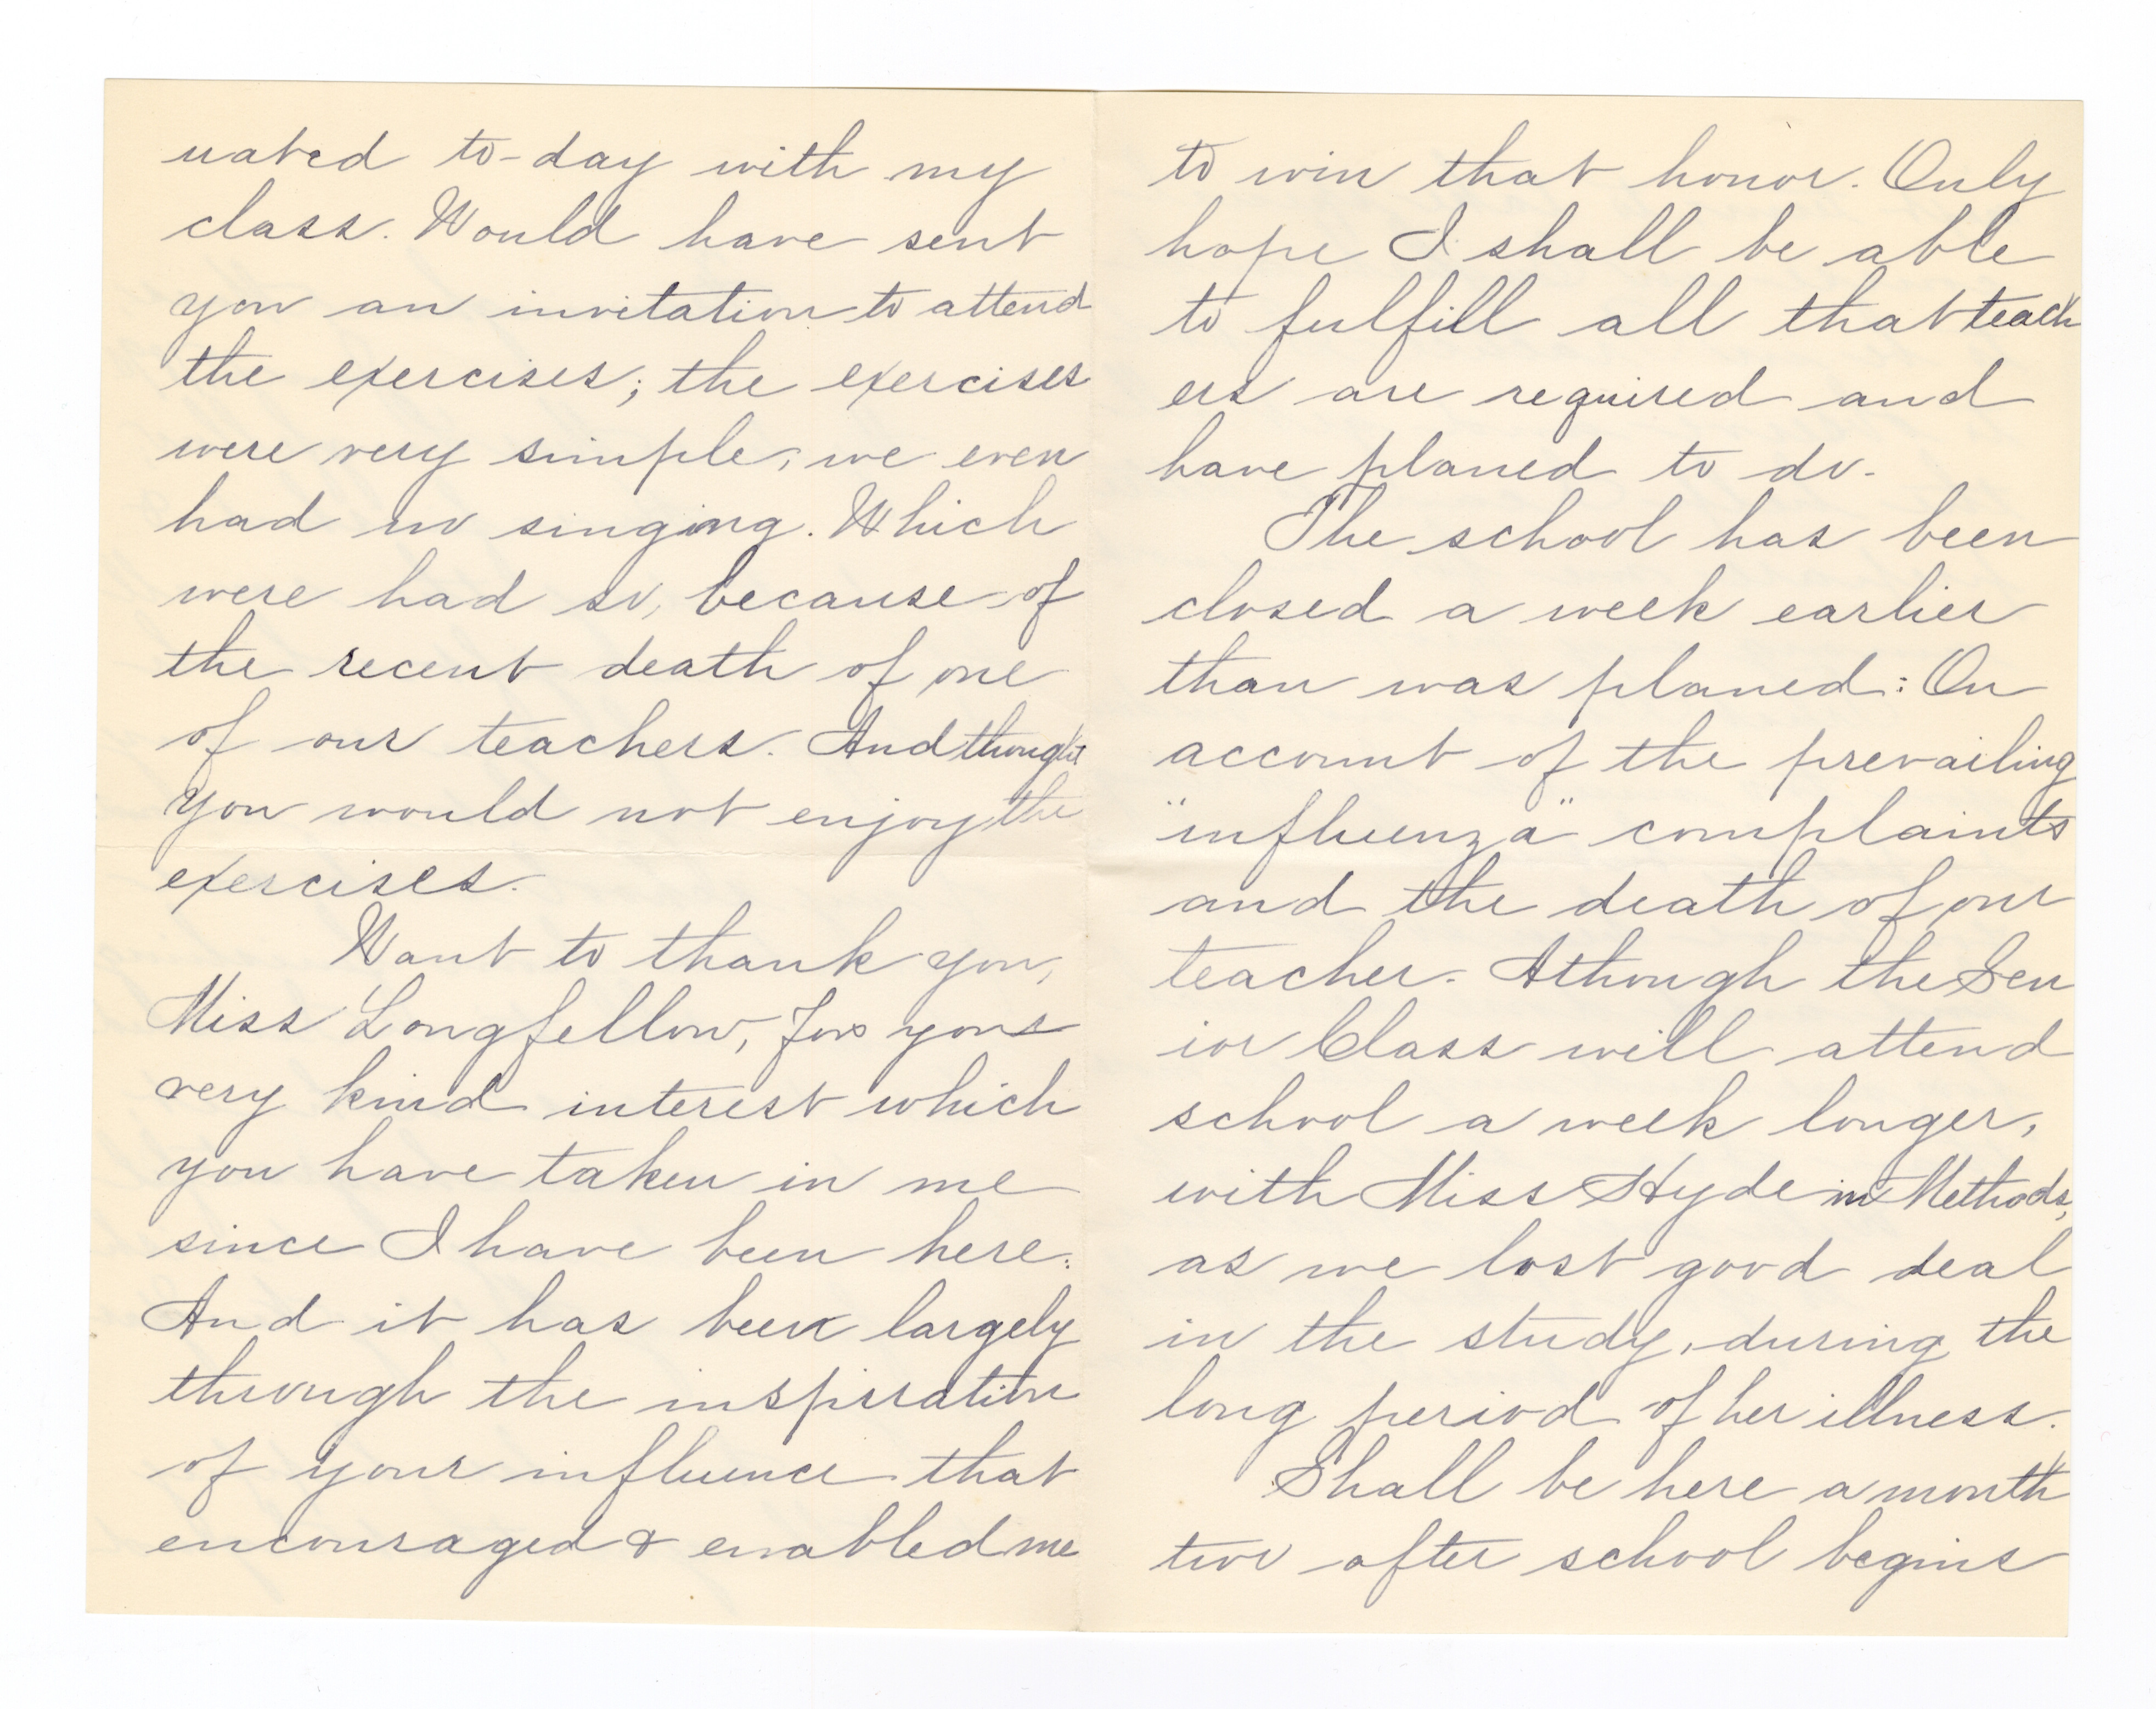 uated to-day with my
class. Would have sent
you an invitation to attend
the exercises; the exercises
were very simple, we even
had no singing. Which
were had so, because of
the recent death of one
of our teachers. And thought
you would not enjoy the
exercises.
Want to thank you,
Miss Longfellow, for your
very kind interest which
you have taken in me
since I have been here.
And it has been largely
through the inspiration
of your influence that
encouraged & enabled me
to win that honor. Only
hope I shall be able
to fulfill all that teach
ers are required and
have planed to do.
The school has been
closed a week earlier
than was planed: On
account of the prevailing
"influenza" complaints
and the death of our
teacher. Athough the Sen
ior Class will attend
school a week longer,
with Miss Hyde in Methods,
as we lost good deal
in the study, during the
long period of her illness.
Shall be here a month
two after school begins